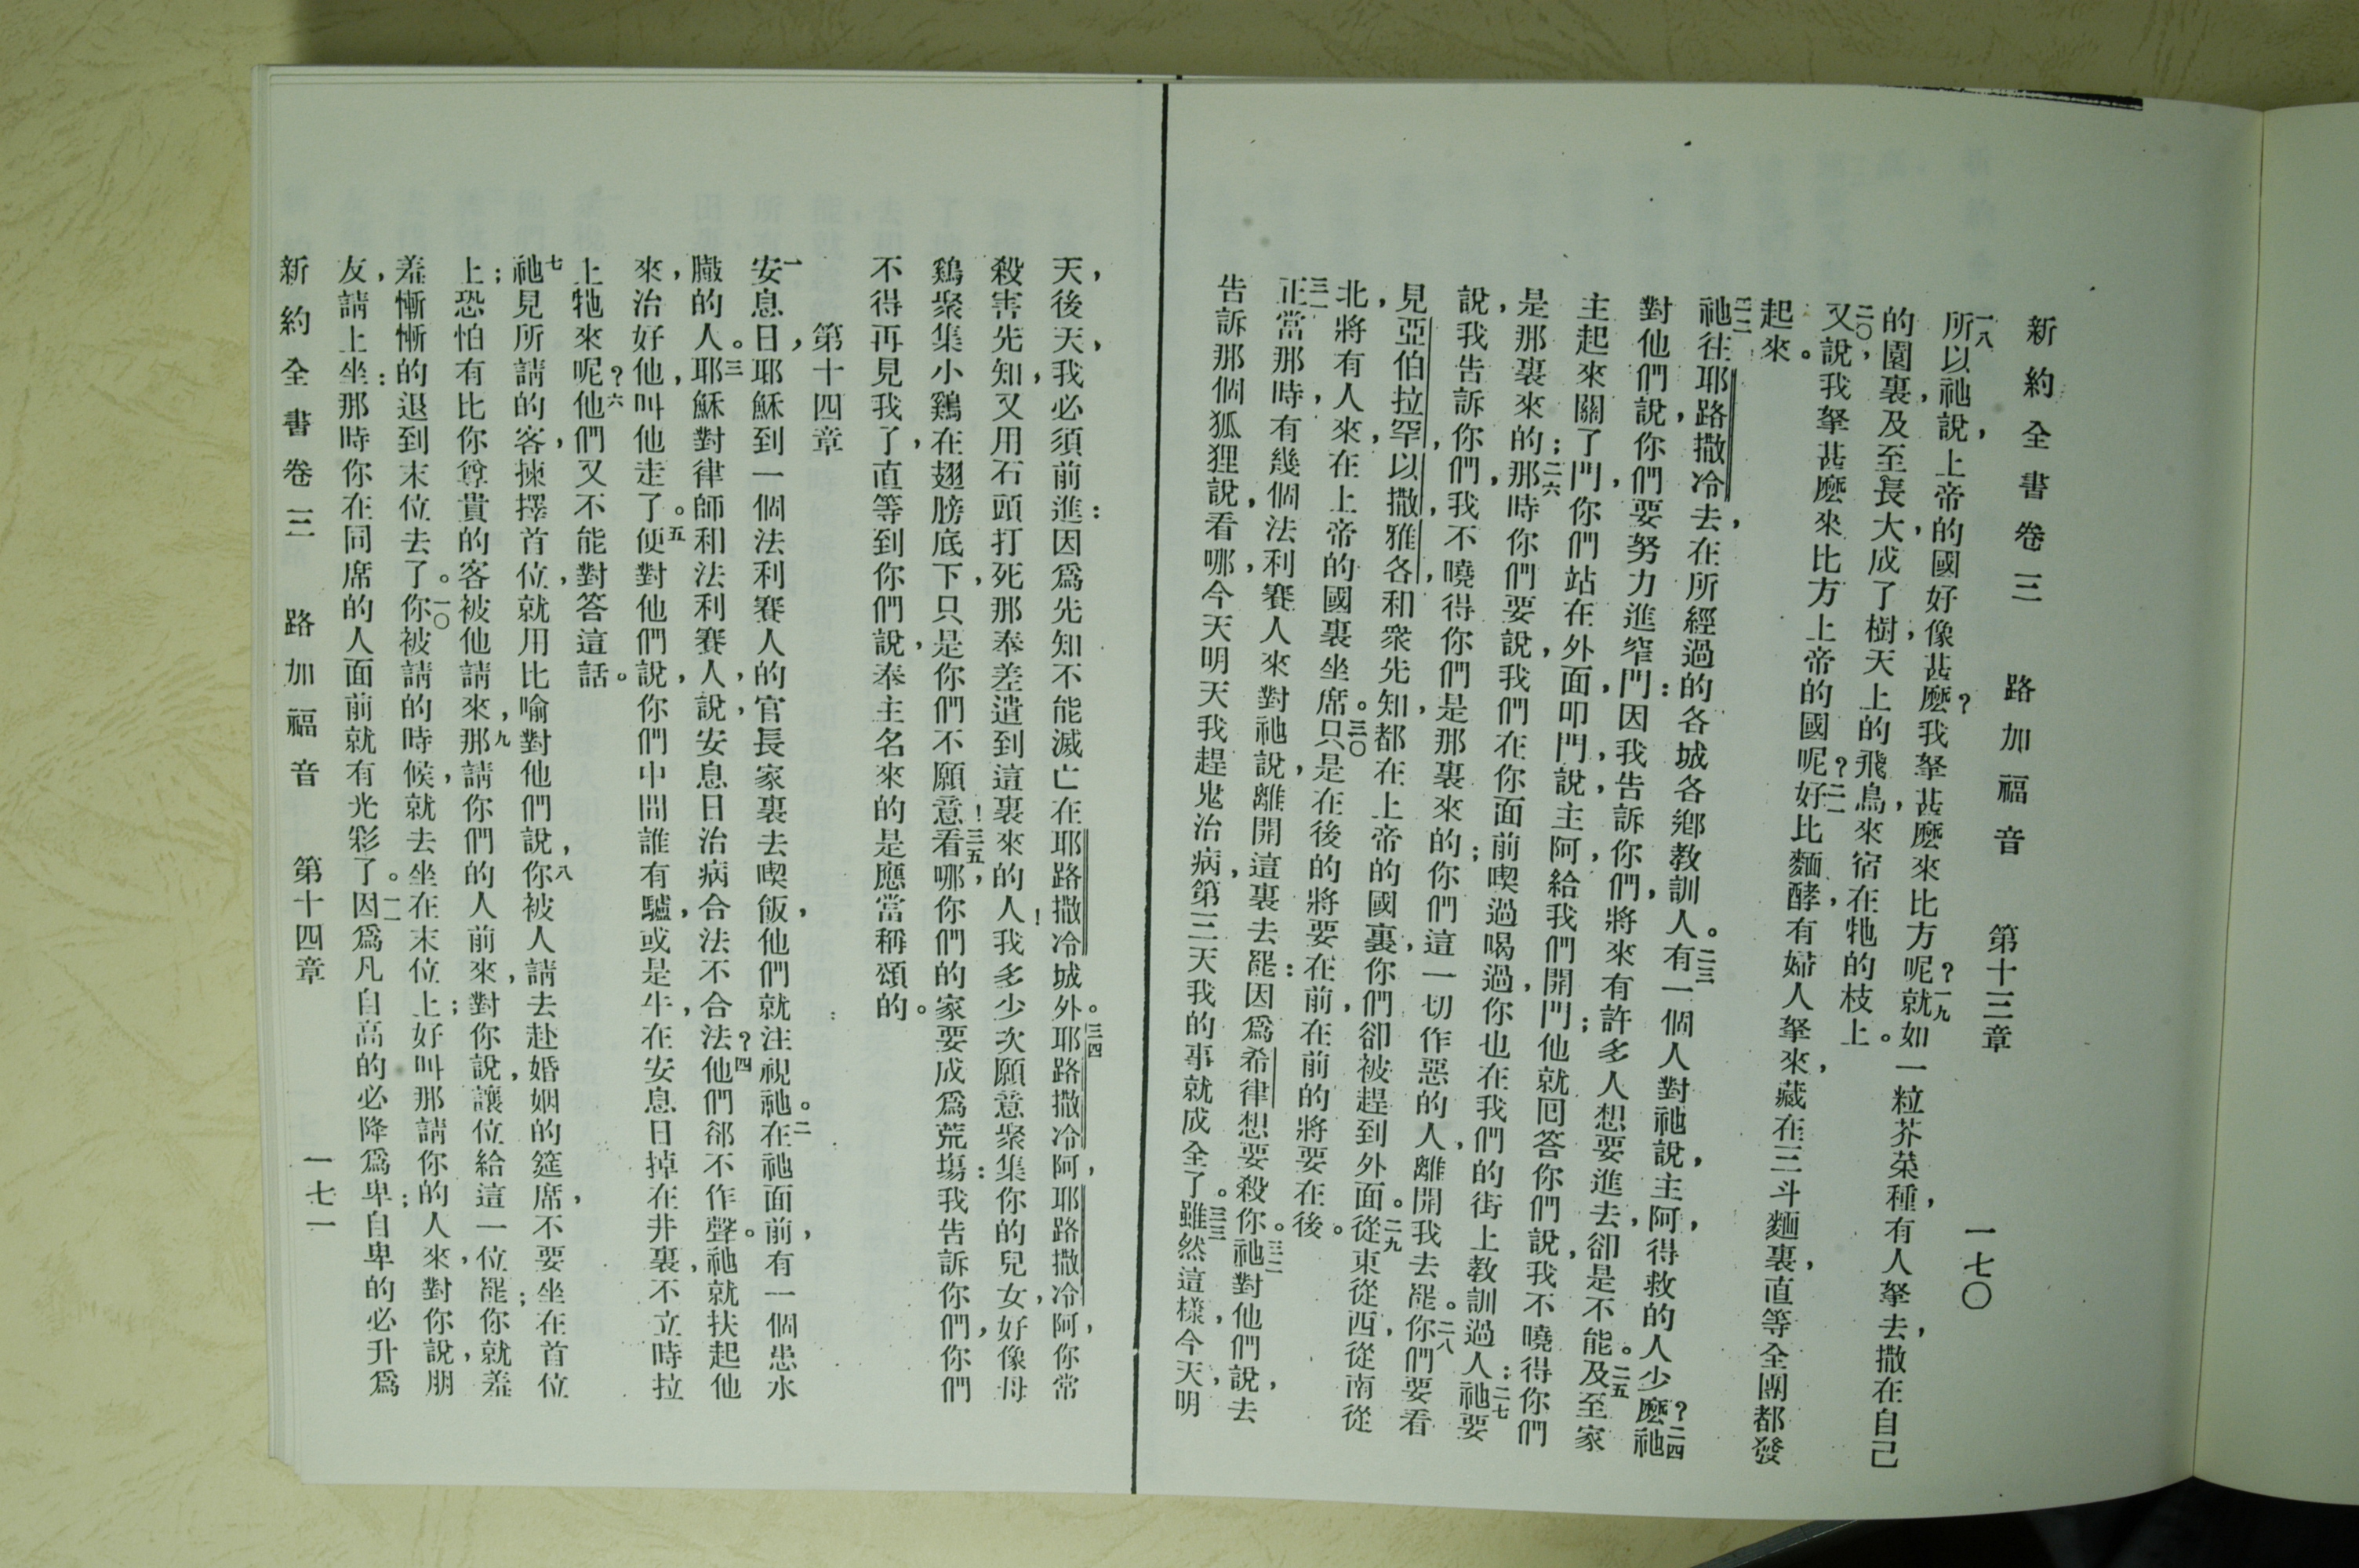 新約全書卷三　路加福音　第十三章　一七〇
一八所以祂說，上帝的國好像甚麼？我拏甚麼來比方呢？一九就如一粒芥菜種，有人拏去，撒在自己
的園裏，及至長大，成了樹，天上的飛鳥，來宿在牠的枝上。
二〇又說，我拏甚麼來比方上帝的國呢？二一好比麵酵，有婦人拏來，藏在三斗麵裏，直等全團都發
起來。
二二祂往耶路撒冷去，在所經過的各城各鄉教訓人。二三有一個人對祂說，主阿，得救的人少麼？二四祂
對他們說，你們要努力進窄門：因我告訴你們，將來有許多人想要進去，卻是不能。二五及至家
主起來關了門，你們站在外面，叩門，說，主阿，給我們開門；他就回答你們說，我不曉得你們
是那裏來的；二六那時你們要說，我們在你面前喫過喝過，你也在我們的街上教訓過人：二七祂要
說，我告訴你們，我不曉得你們是那裏來的；你們這一切作惡的人，離開我去罷。二八你們要看
見亞伯拉罕，以撒，雅各，和衆先知，都在上帝的國裏，你們卻被趕到外面。二九從東，從西，從南，從
北，將有人來，在上帝的國裏坐席。三〇只是在後的將要在前，在前的將要在後。
三一正當那時，有幾個法利賽人來對祂說，離開這裏去罷：因爲希律想要殺你。三二祂對他們說，去
告訴那個狐狸說，看哪，今天明天我趕鬼治病，第三天我的事就成全了。三三雖然這樣，今天，明
天，後天，我必須前進：因爲先知不能滅亡在耶路撒冷城外。三四耶路撒冷阿，耶路撒冷阿，你常
殺害先知，又用石頭打死那奉差遣到這裏來的人！我多少次願意聚集你的兒女，好像母
鷄聚集小鷄在翅膀底下，只是你們不願意！三五看哪，你們的家要成爲荒塲：我告訴你們，你們
不得再見我了，直等到你們說，奉主名來的是應當稱頌的。
第十四章
一安息日，耶穌到一個法利賽人的官長家裏去喫飯，他們就注視祂。二在祂面前，有一個患水
臌的人。三耶穌對律師和法利賽人，說，安息日治病合法不合法？四他們卻不作聲。祂就扶起他
來，治好他，叫他走了。五便對他們說，你們中間誰有驢，或是牛，在安息日掉在井裏，不立時拉
上牠來呢？六他們又不能對答這話。
七祂見所請的客，揀擇首位，就用比喻對他們說，八你被人請去赴婚姻的筵席，不要坐在首位
上；恐怕有比你尊貴的客被他請來，九那請你們的人前來，對你說，讓位給這一位罷；你就羞
羞慚慚的退到末位去了。一〇你被請的時候，就去坐在末位上；好叫那請你的人來，對你說，朋
友，請上坐：那時你在同席的人面前就有光彩了。一一因爲凡自高的必降爲卑；自卑的必升爲
新約全書卷三　路加福音　第十四章　一七一